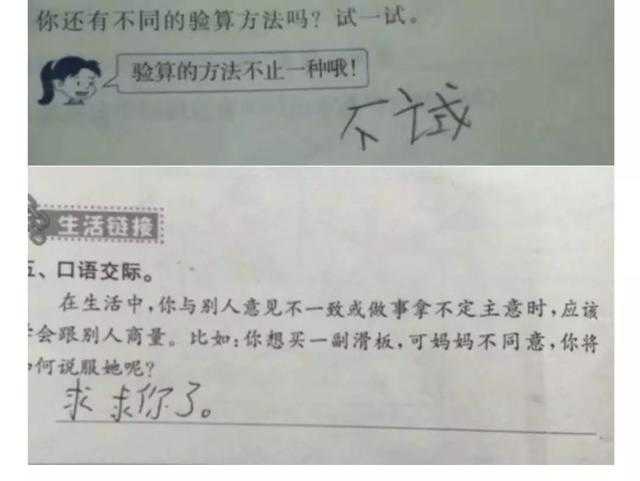 你还有不同的验算方法吗？试一试。
验算的方法不止一种哦！
不试
生活链接
五、口语交际。
在生活中，你与别人意见不一致或做事拿不定主意时，应该
学会跟别人商量。比如：你想买一副滑板，可妈妈不同意，你将
如何说服她呢？
求求你了。